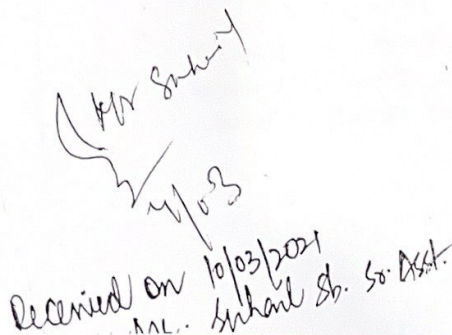 Mr Suhail
11/03
Received on 10/03/2021
Suhail Sb. Sr. Asst.